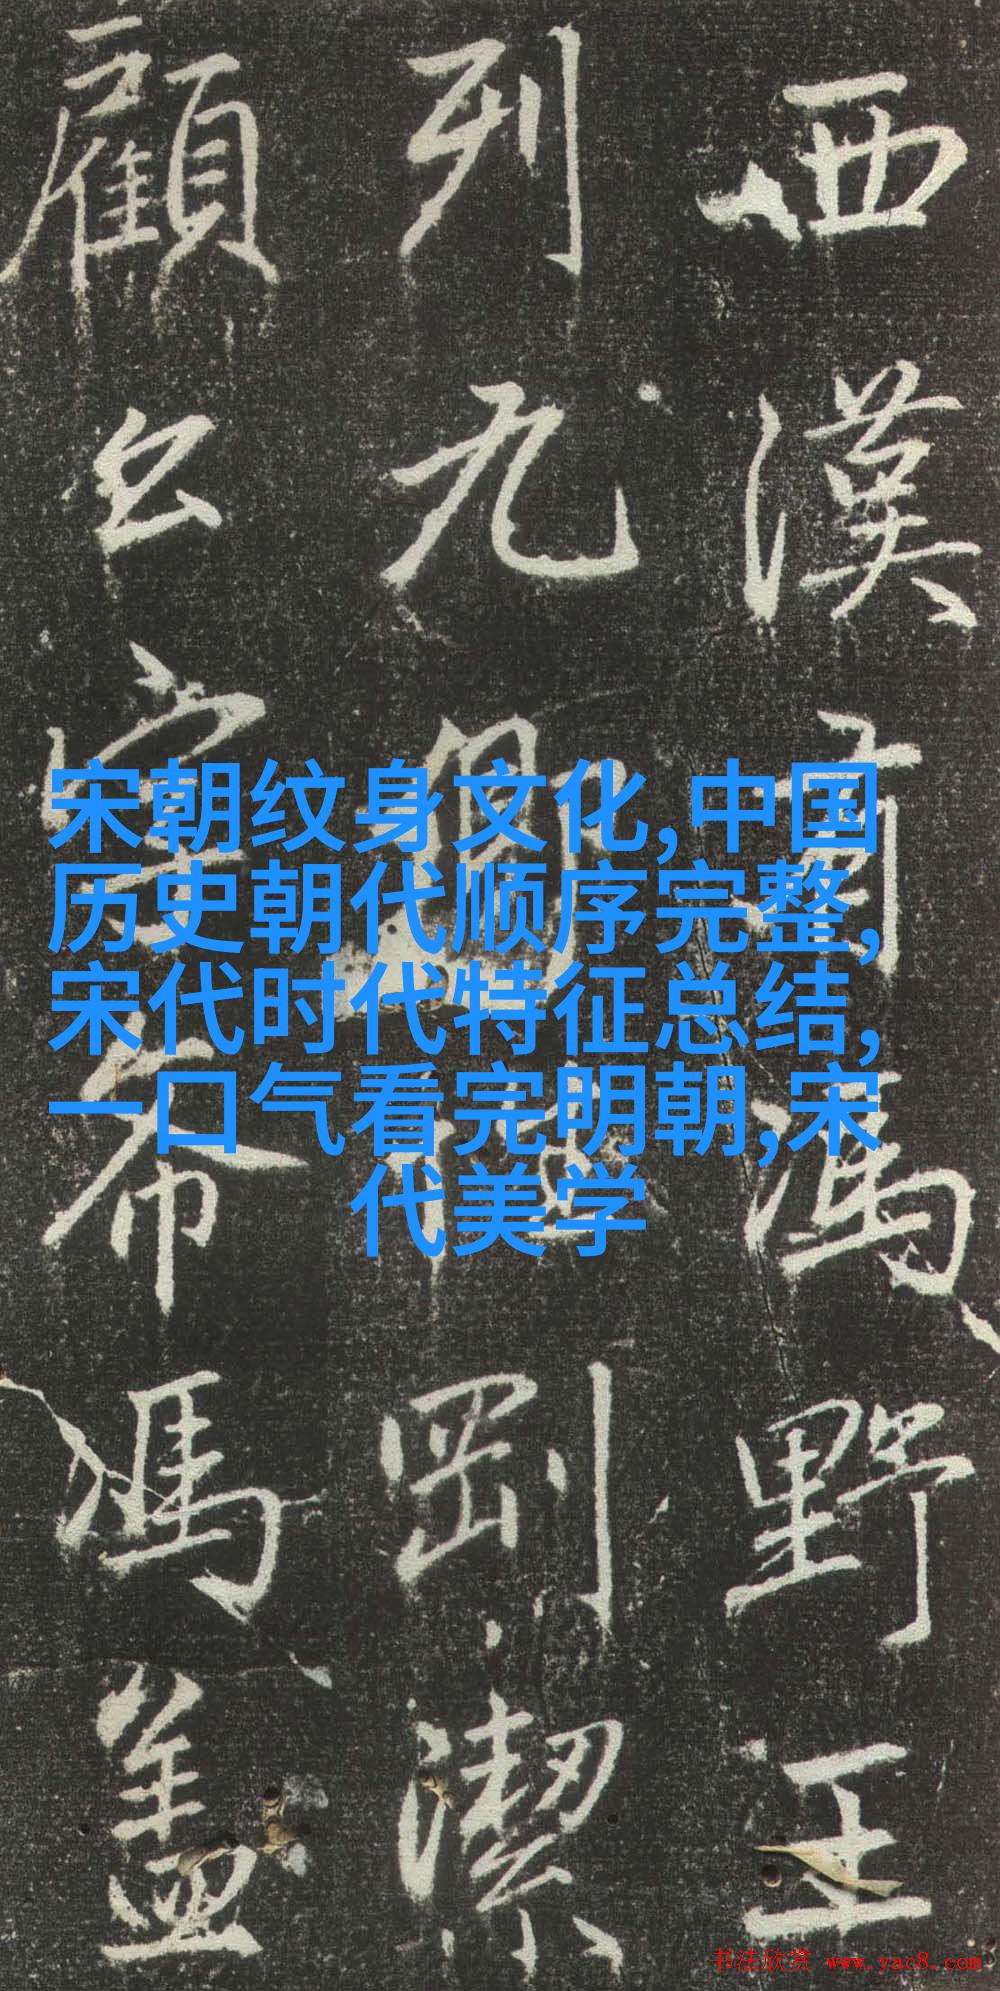 西漢有馮野王
列九卿剛潔
顧公希馮盖
宋朝纹身文化,中国
历史朝代顺序完整,
宋代时代特征总结,
一口气看完明朝,宋
代美学
书法欣赏 www.yac8.com